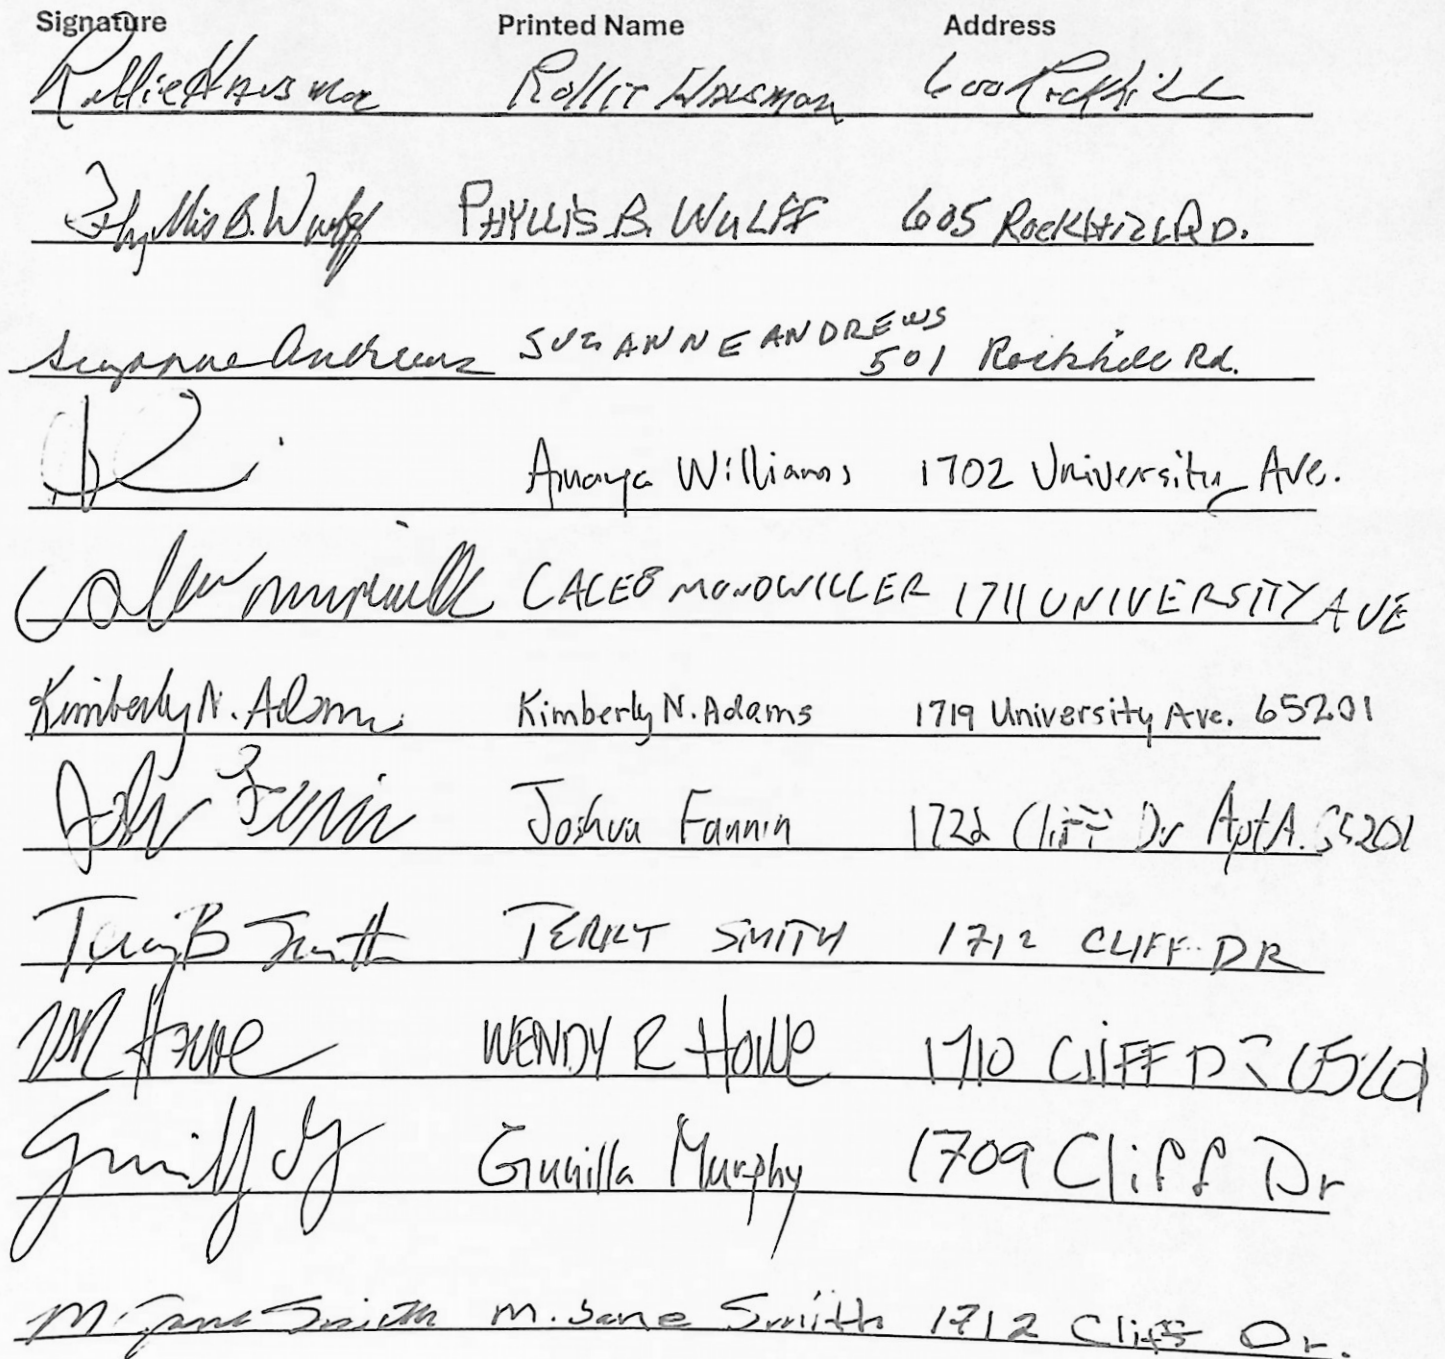 Signature Printed Name Address
Rollie Hausman 600 Rockhill
Phyllis B. Wulff PHYLLIS B. WULFF 605 ROCKHILL RD.
Suzanne Andrews SUZANNE ANDREWS 501 Rockhill Rd.
Amaya Williams 1702 University Ave.
CALEB MONDWILLER 1711 UNIVERSITY AVE
Kimberly N. Adams Kimberly N. Adams 1719 University Ave. 65201
Joshua Fannin 1722 Cliff Dr Apt A. 65201
Terry B Smith TERRY SMITH 1712 CLIFF DR
WR Howe WENDY R HOWE 1710 CLIFF DR 65201
Gunilla Murphy 1709 Cliff Dr
M. Jane Smith M. Jane Smith 1712 Cliff Dr.